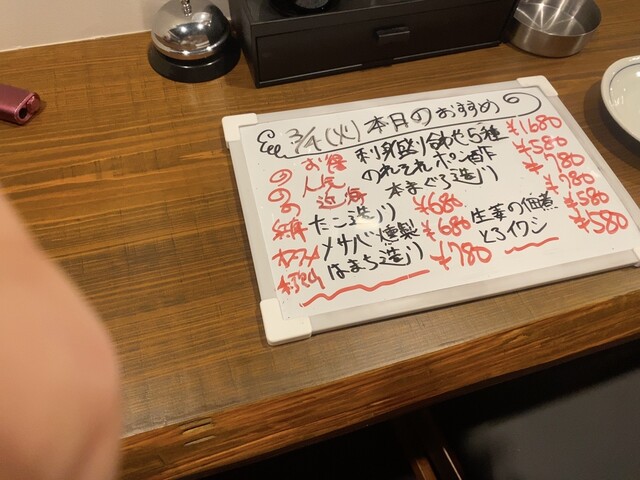 3/4(火) 本日のおすすめ
お得 刺身盛り合わせ5種 ¥1680
人気 のれそれポン酢 ¥580
近海 本まぐろ造り ¥780
たこ造り ¥680 ¥780
オススメ メサバ燻製 ¥680 生芽の佃煮 ¥580
はまち造り ¥780 とろイワシ ¥580